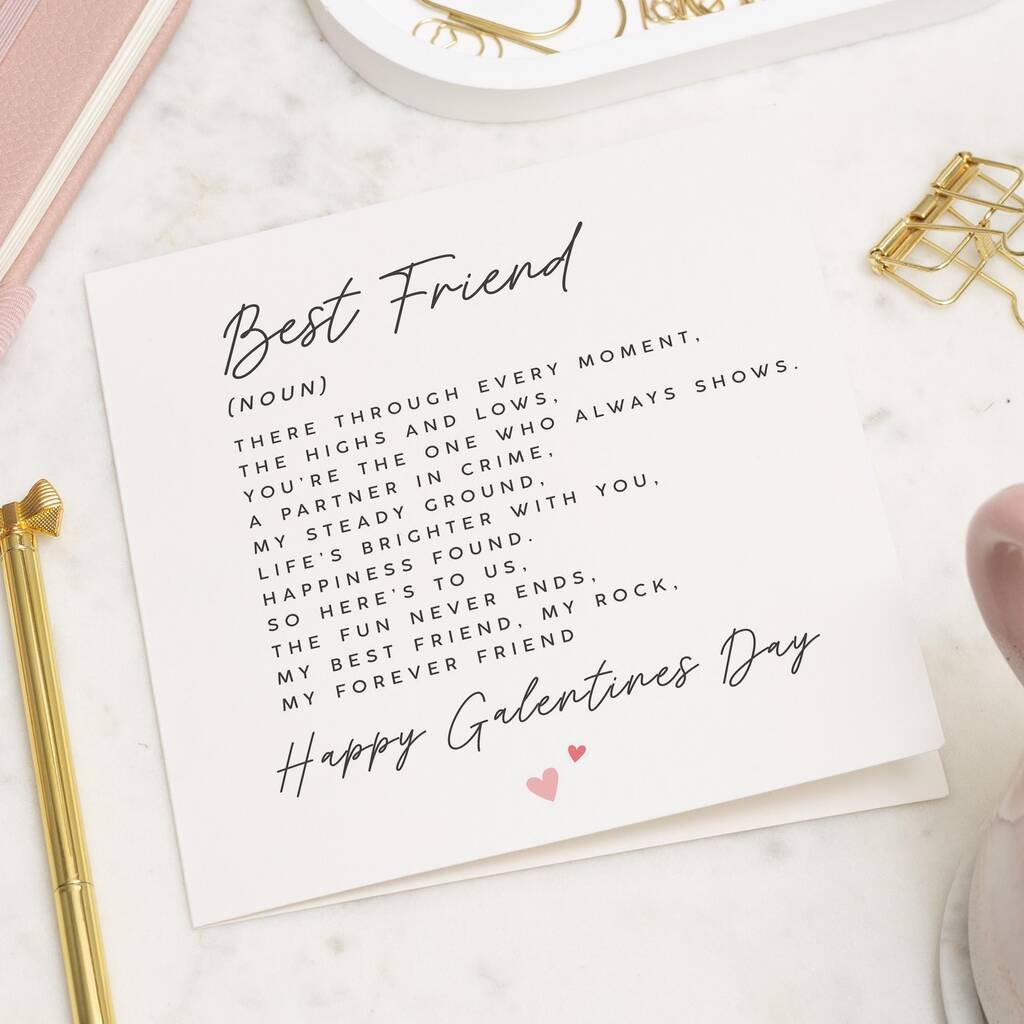 Best Friend
(NOUN)
THERE THROUGH EVERY MOMENT,
THE HIGHS AND LOWS,
YOU'RE THE ONE WHO ALWAYS SHOWS.
A PARTNER IN CRIME,
MY STEADY GROUND,
LIFE'S BRIGHTER WITH YOU,
HAPPINESS FOUND.
SO HERE'S TO US,
THE FUN NEVER ENDS,
MY BEST FRIEND, MY ROCK,
MY FOREVER FRIEND
Happy Galentines Day